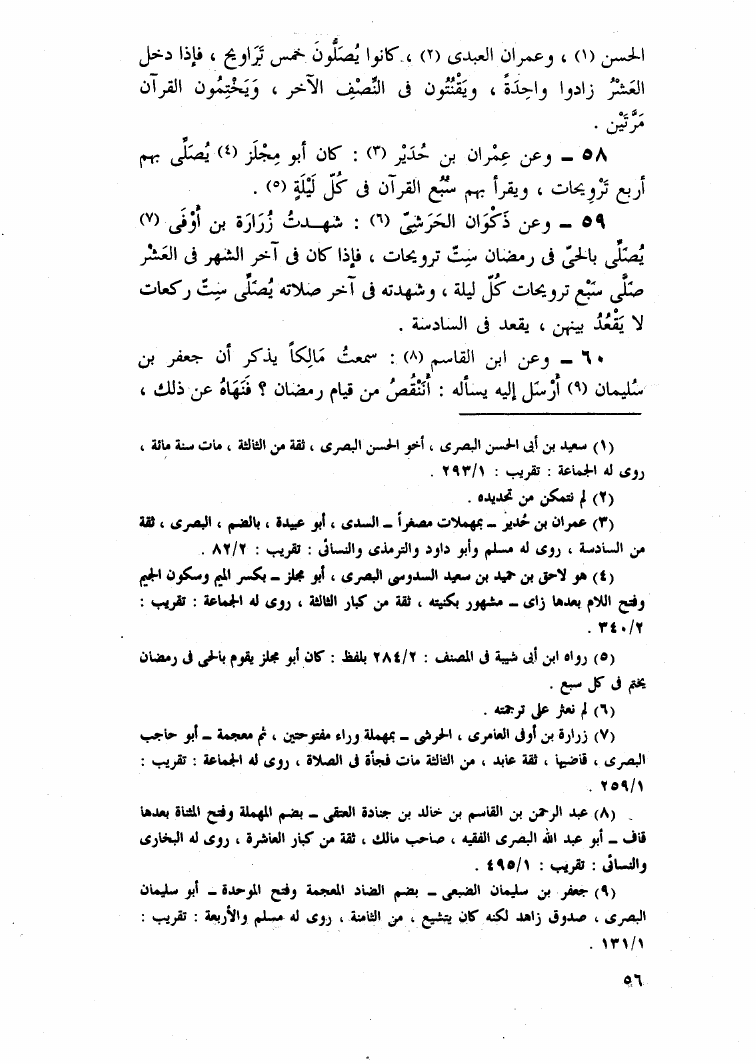 الحسن (١) ، وعمران العبدى (٢) ، كانوا يُصَلُّونَ خمس تَراويح ، فإذا دخل
العَشْرُ زادوا واحِدَةً ، ويَقْنُتُون فى النِّصْفِ الآخر ، وَيَخْتِمُون القرآن
مَرَّتَيْن .
٥٨ ــ وعن عِمْران بن حُدَيْر (٣) : كان أبو مِجْلَز (٤) يُصَلِّى بهم
أربع تَرْويحات ، ويقرأ بهم سُبُع القرآن فى كُلّ لَيْلَةٍ (٥) .
٥٩ ــ وعن ذَكْوَان الحَرَشِىّ (٦) : شهدتُ زُرَارَة بن أَوْفَى (٧)
يُصَلِّى بالحىّ فى رمضان سِتَّ ترويحات ، فإذا كان فى آخر الشهر فى العَشْر
صَلَّى سَبْع ترويحات كُلّ ليلة ، وشهدته فى آخر صلاته يُصَلِّى سِتّ ركعات
لا يَقْعُدُ بينهن ، يقعد فى السادسة .
٦٠ ــ وعن ابن القاسم (٨) : سمعتُ مَالِكاً يذكر أن جعفر بن
سُليمان (٩) أَرْسَل إليه يسأله : أَنَنْقُصُ من قيام رمضان ؟ فَنَهَاهُ عن ذلك ،
(١) سعيد بن أبى الحسن البصرى ، أخو الحسن البصرى ، ثقة من الثالثة ، مات سنة مائة ،
روى له الجماعة : تقريب : ٢٩٣/١ .
(٢) لم نتمكن من تحديده .
(٣) عمران بن حُدير ــ بمهملات مصغراً ــ السدى ، أبو عبيدة ، بالضم ، البصرى ، ثقة
من السادسة ، روى له مسلم وأبو داود والترمذى والنسائى : تقريب : ٨٢/٢ .
(٤) هو لاحق بن حميد بن سعيد السدوسى البصرى ، أبو مجلز ــ بكسر الميم وسكون الجيم
وفتح اللام بعدها زاى ــ مشهور بكنيته ، ثقة من كبار الثالثة ، روى له الجماعة : تقريب :
٣٤٠/٢ .
(٥) رواه ابن أبى شيبة فى المصنف : ٢٨٤/٢ بلفظ : كان أبو مجلز يقوم بالحى فى رمضان
يختم فى كل سبع .
(٦) لم نعثر على ترجمته .
(٧) زرارة بن أوفى العامرى ، الحرشى ــ بمهملة وراء مفتوحتين ، ثم معجمة ــ أبو حاجب
البصرى ، قاضيها ، ثقة عابد ، من الثالثة مات فجأة فى الصلاة ، روى له الجماعة : تقريب :
٢٥٩/١ .
(٨) عبد الرحمن بن القاسم بن خالد بن جنادة العتقى ــ بضم المهملة وفتح المثناة بعدها
قاف ــ أبو عبد الله البصرى الفقيه ، صاحب مالك ، ثقة من كبار العاشرة ، روى له البخارى
والنسائى : تقريب : ٤٩٥/١ .
(٩) جعفر بن سليمان الضبعى ــ بضم الضاد المعجمة وفتح الموحدة ــ أبو سليمان
البصرى ، صدوق زاهد لكنه كان يتشيع ، من الثامنة ، روى له مسلم والأربعة : تقريب :
١٣١/١ .
٥٦